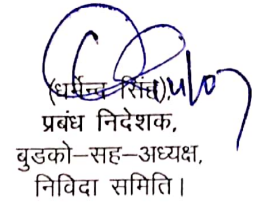 (धर्मेन्द्र सिंह),
प्रबंध निदेशक,
बुडको–सह–अध्यक्ष,
निविदा समिति।